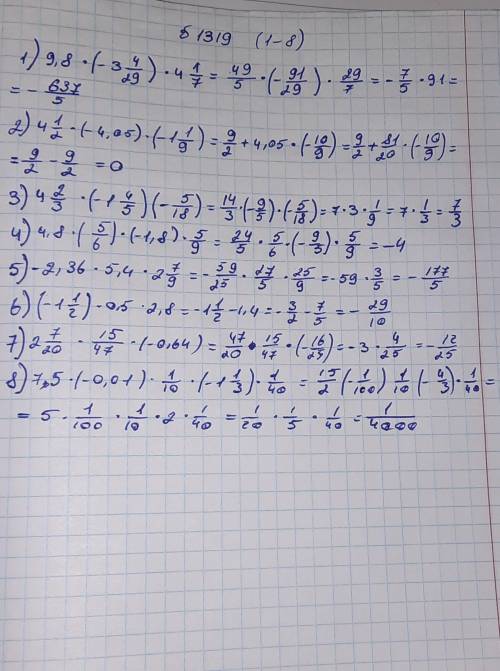 Б 1319 (1-8)
1) 9,8 · (-3 4/29) · 4 1/7 = 49/5 · (-91/29) · 29/7 = -7/5 · 91 =
= -637/5
2) 4 1/2 · (-4,05) · (-1 1/9) = 9/2 + 4,05 · (-10/9) = 9/2 + 81/20 · (-10/9) =
= 9/2 - 9/2 = 0
3) 4 2/3 · (-1 4/5) (-5/18) = 14/3 · (-9/5) · (-5/18) = 7 · 3 · 1/9 = 7 · 1/3 = 7/3
4) 4.8 · (5/6) · (-1,8) · 5/9 = 24/5 · 5/6 · (-9/3) · 5/9 = -4
5) -2,36 · 5,4 · 2 7/9 = -59/25 · 27/5 · 25/9 = -59 · 3/5 = -177/5
6) (-1 1/2) - 0,5 · 2,8 = -1 1/2 - 1,4 = -3/2 - 7/5 = -29/10
7) 2 7/20 · 15/47 · (-0,64) = 47/20 · 15/47 · (-16/25) = -3 · 4/25 = -12/25
8) 7,5 · (-0,01) · 1/10 · (-1 1/3) · 1/40 = 15/2 (-1/100) 1/10 (-4/3) · 1/40 =
= 5 · 1/100 · 1/10 · 2 · 1/40 = 1/20 · 1/5 · 1/40 = 1/4000